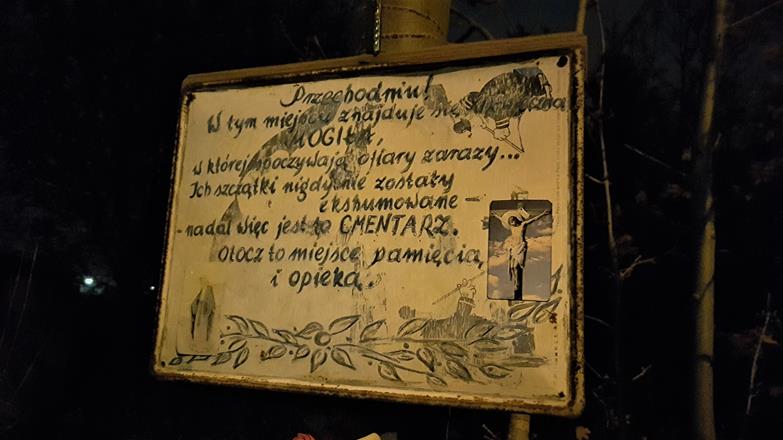 Przechodniu!
W tym miejscu znajduje się
MOGIŁA,
w której spoczywają ofiary zarazy...
Ich szczątki nigdy nie zostały
ekshumowane -
- nadal więc jest to CMENTARZ.
Otocz to miejsce pamięcią
i opieką.